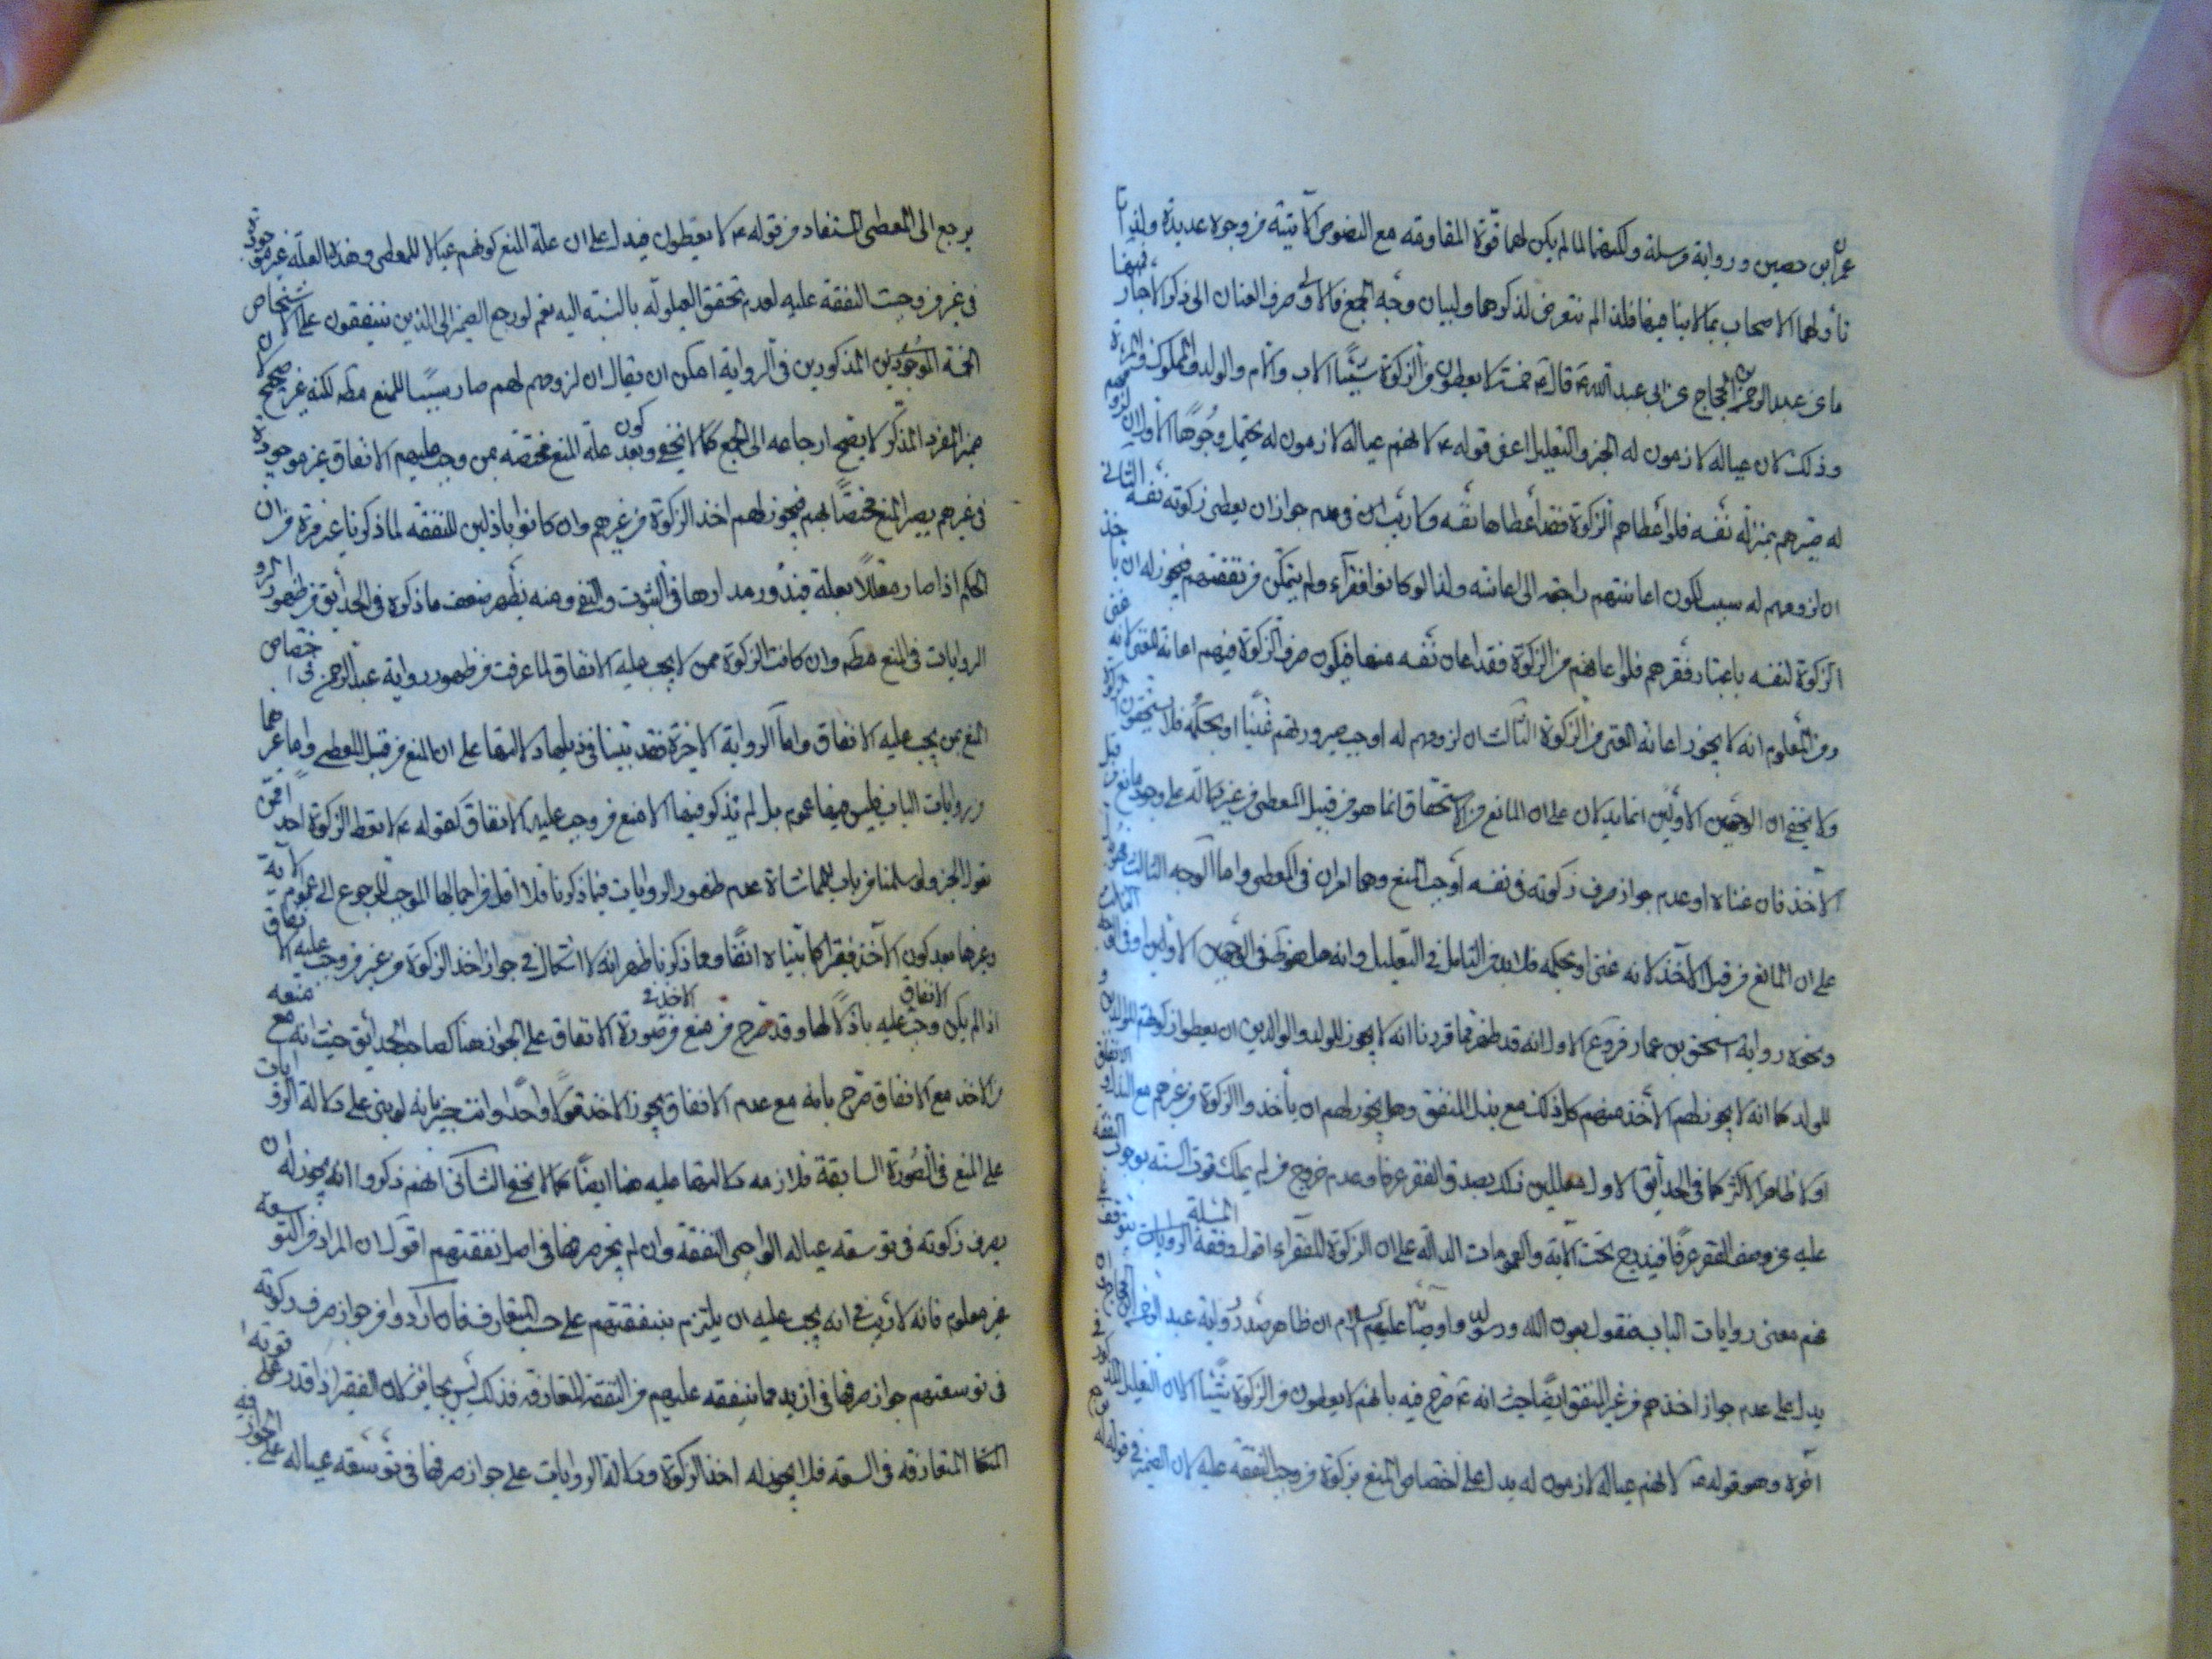 عمران بن حصين ورواية مرسلة ولكنهما لما لم يكن لهما قوة المقاومة مع النصوص الآتية من وجوه عديدة ولذا
تأولهما الاصحاب بما لا ينافيها فلذا لم نتعرض لذكرهما ولبيان وجه الجمع فالاولى صرف العنان الى ذكر الاخبار فمنها
ما عن عبد الرحمن بن الحجاج عن ابي عبد الله ع قال ع خمسة لا يعطون من الزكوة شيئًا الاب والام والولد والمملوك والمرءة
وذلك لان عياله لازمون له الخبر والتعليل اعنى قوله ع لانهم عياله لازمون له يحتمل وجوهًا الاول ان لزومهم
له صيرهم بمنزلة نفسه فلو أعطاهم الزكوة فقد أعطاها نفسه ولا ريب ان فى عدم جواز ان يعطى زكوته نفسه الثانى
ان لزومهم له سبب لكون اعانتهم راجعة الى اعانته ولذا لو كانوا فقرآء ولم يتمكن من نفقتهم فيجوز له ان ياخذ
الزكوة لنفسه باعتبار فقرهم فلو اعانهم من الزكوة فقد اعان نفسه منها فيكون صرف الزكوة فيهم اعانة الغنى لانه غنى
ومن المعلوم انه لا يجوز اعانة الغنى من الزكوة الثالث ان لزومهم له اوجب صيرورتهم غنيًا او بحكمه فلا يستحقون الزكوة
ولا يخفى ان الوجهين الاولين انما يدلان على ان المانع من الاستحقاق انما هو من قبيل المعطى من غير دلالة على وجود مانع من قبل
الآخذ فان غناه او عدم جواز صرف زكوته فى نفسه أوجب المنع وهما امران فى المعطى واما الوجه الثالث
على ان المانع من قبل الآخذ لانه غنى او بحكمه فلا بد من التامل فى التعليل وانه هل هو ظ فى الوجهين الاولين او فى الثالث
ونحوه رواية اسحق بن عمار فروع الاول انه قد ظهر مما قررنا انه لا يجوز للولد والوالدين ان يعطوا زكوتهم للوالدين و
للولد كما انه لا يجوز لهم الأخذ منهم كل ذلك مع بذل المنفق وهل يجوز لهم ان يأخذوا الزكوة من غيرهم مع البذل و الانفاق
اولا ظاهر الاكثر كما فى الحدائق الاول معللين ذلك بصدق الفقر عرفا وعدم خروج من لم يملك قوت السنة بوجوب النفقة
عليه عن وصف الفقر عرفًا فيندرج تحت الآية والعمومات الدالة على ان الزكوة للفقرآء اقول وفقه المسئلة يتوقف
فهم معنى روايات الباب فنقول بعون الله ورسوله واوصيائه عليهم السلام ان ظاهر صدر رواية عبد الرحمن بن الحجاج
يدل على عدم جواز اخذهم من غير المنفق ايضًا حيث انه ع صرح فيه بانهم لا يعطون من الزكوة شيئًا الا ان التعليل المذكور فى
آخره وهو قوله ع لانهم عياله لازمون له يدل على اختصاص المنع بزكوة من وجب النفقة عليه لان الضمير فى قوله له
يرجع الى المعطى المستفاد من قوله ع لا يعطون فيدل على ان علة المنع كونهم عيالا للمعطى وهذه العلة غير موجودة
فى غير من وجبت النفقة عليه لعدم تحقق العيلولة بالنسبة اليه نعم لو رجع الضمير الى الذين ينفقون على الاشخاص
الخمسة الموجودين المذكورين فى الرواية امكن ان يقال ان لزومهم لهم صار سببًا للمنع مط لكنه غير صحيح لان
ضمير المفرد المذكر لا يصح ارجاعه الى الجمع كما لا يخفى وبعد كون علة المنع مختصة بمن وجب عليهم الانفاق غير موجودة
فى غيرهم يصير المنع مختصًا بهم فيجوز لهم اخذ الزكوة من غيرهم وان كانوا باذلين للنفقة لما ذكرنا غير مرة من ان
الحكم اذا صار معللًا بعلة فيدور مدارها فى الثبوت والنفى ومنه يظهر ضعف ما ذكره فى الحدائق من ظهور
الروايات فى المنع مط وان كانت الزكوة ممن لا يجب عليه الانفاق لما عرفت من ظهور رواية عبد الرحمن فى اختصاص
المنع بمن يجب عليه الانفاق واما الرواية الاخيرة فقد بينا فى ذيلها دلالتها على ان المنع من قبل المعطى واما غيرهما
من روايات الباب فليس فيها عموم بل لم يذكر فيها الا منع من وجب عليه الانفاق كقوله ع لا تعط الزكوة احدًا ممن
تعول الخبر ولو سلمنا من باب المماشاة عدم ظهور الروايات فيما ذكرنا فلا اقل من اجمالها الموجب للرجوع الى عموم الآية
وغيرها بعد كون الآخذ فقيرا كما بيناه انفًا ومما ذكرنا ظهر انه لا اشكال فى جواز اخذ الزكوة من غير من وجب عليه الانفاق
اذا لم يكن من وجب عليه الانفاق باذلًا لها وقد صرح من منع من الاخذ فى صورة الانفاق على الجواز هنا كصاحب الحدائق حيث انه مع منعه
من الاخذ مع الانفاق صرح بانه مع عدم الانفاق يجوز الاخذ قولًا واحدًا وانت خبير بانه لو بنى على دلالة الروايات
على المنع فى الصورة السابقة فلازمه دلالتها عليه هنا ايضًا كما لا يخفى الثانى انهم ذكروا انه يجوز له ان
يصرف زكوته فى توسعة عياله الواجبى النفقة وان لم يجز صرفها فى اصل نفقتهم اقول ان المراد من التوسعة
غير معلوم فانه لا ريب فى انه يجب عليه ان يلتزم بنفقتهم على حسب المتعارف فان ارادوا من جواز صرف زكوته
فى توسعتهم جواز صرفها فى ازيد مما ينفقه عليهم من النفقة المتعارفة فذلك ليس بجايز لان الفقير اذا قدر على قوته
المتعارفة فى السعة فلا يجوز له اخذ الزكوة ودلالة الروايات على جواز صرفها فى توسعة عياله على